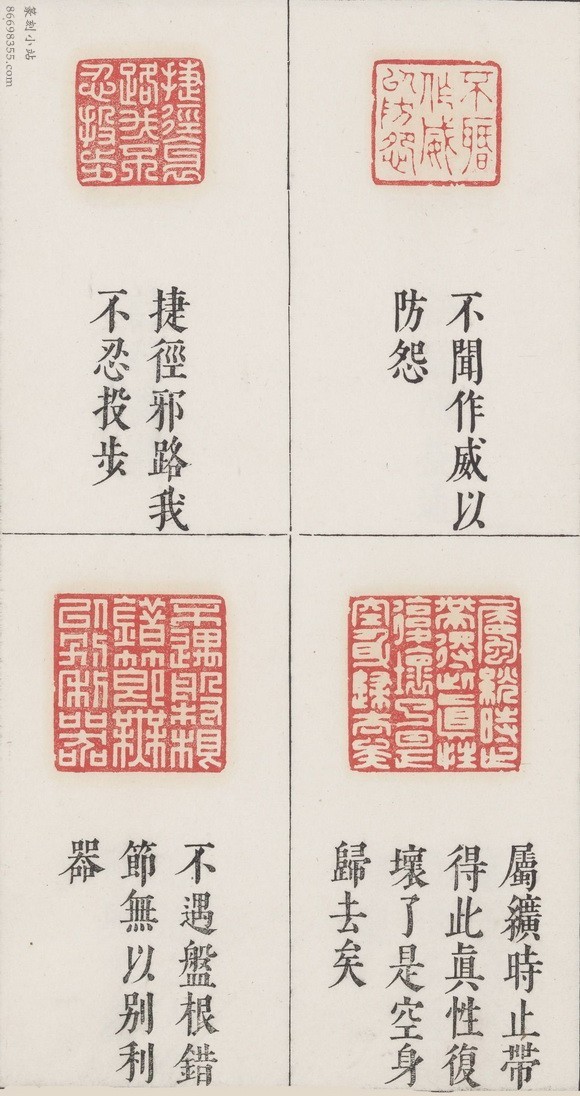 不聞作威以
防怨
捷徑邪路我
不忍投步
屬纊時止帶
得此眞性復
壞了是空身
歸去矣
不遇盤根錯
節無以別利
器
篆刻小站
86698355.com